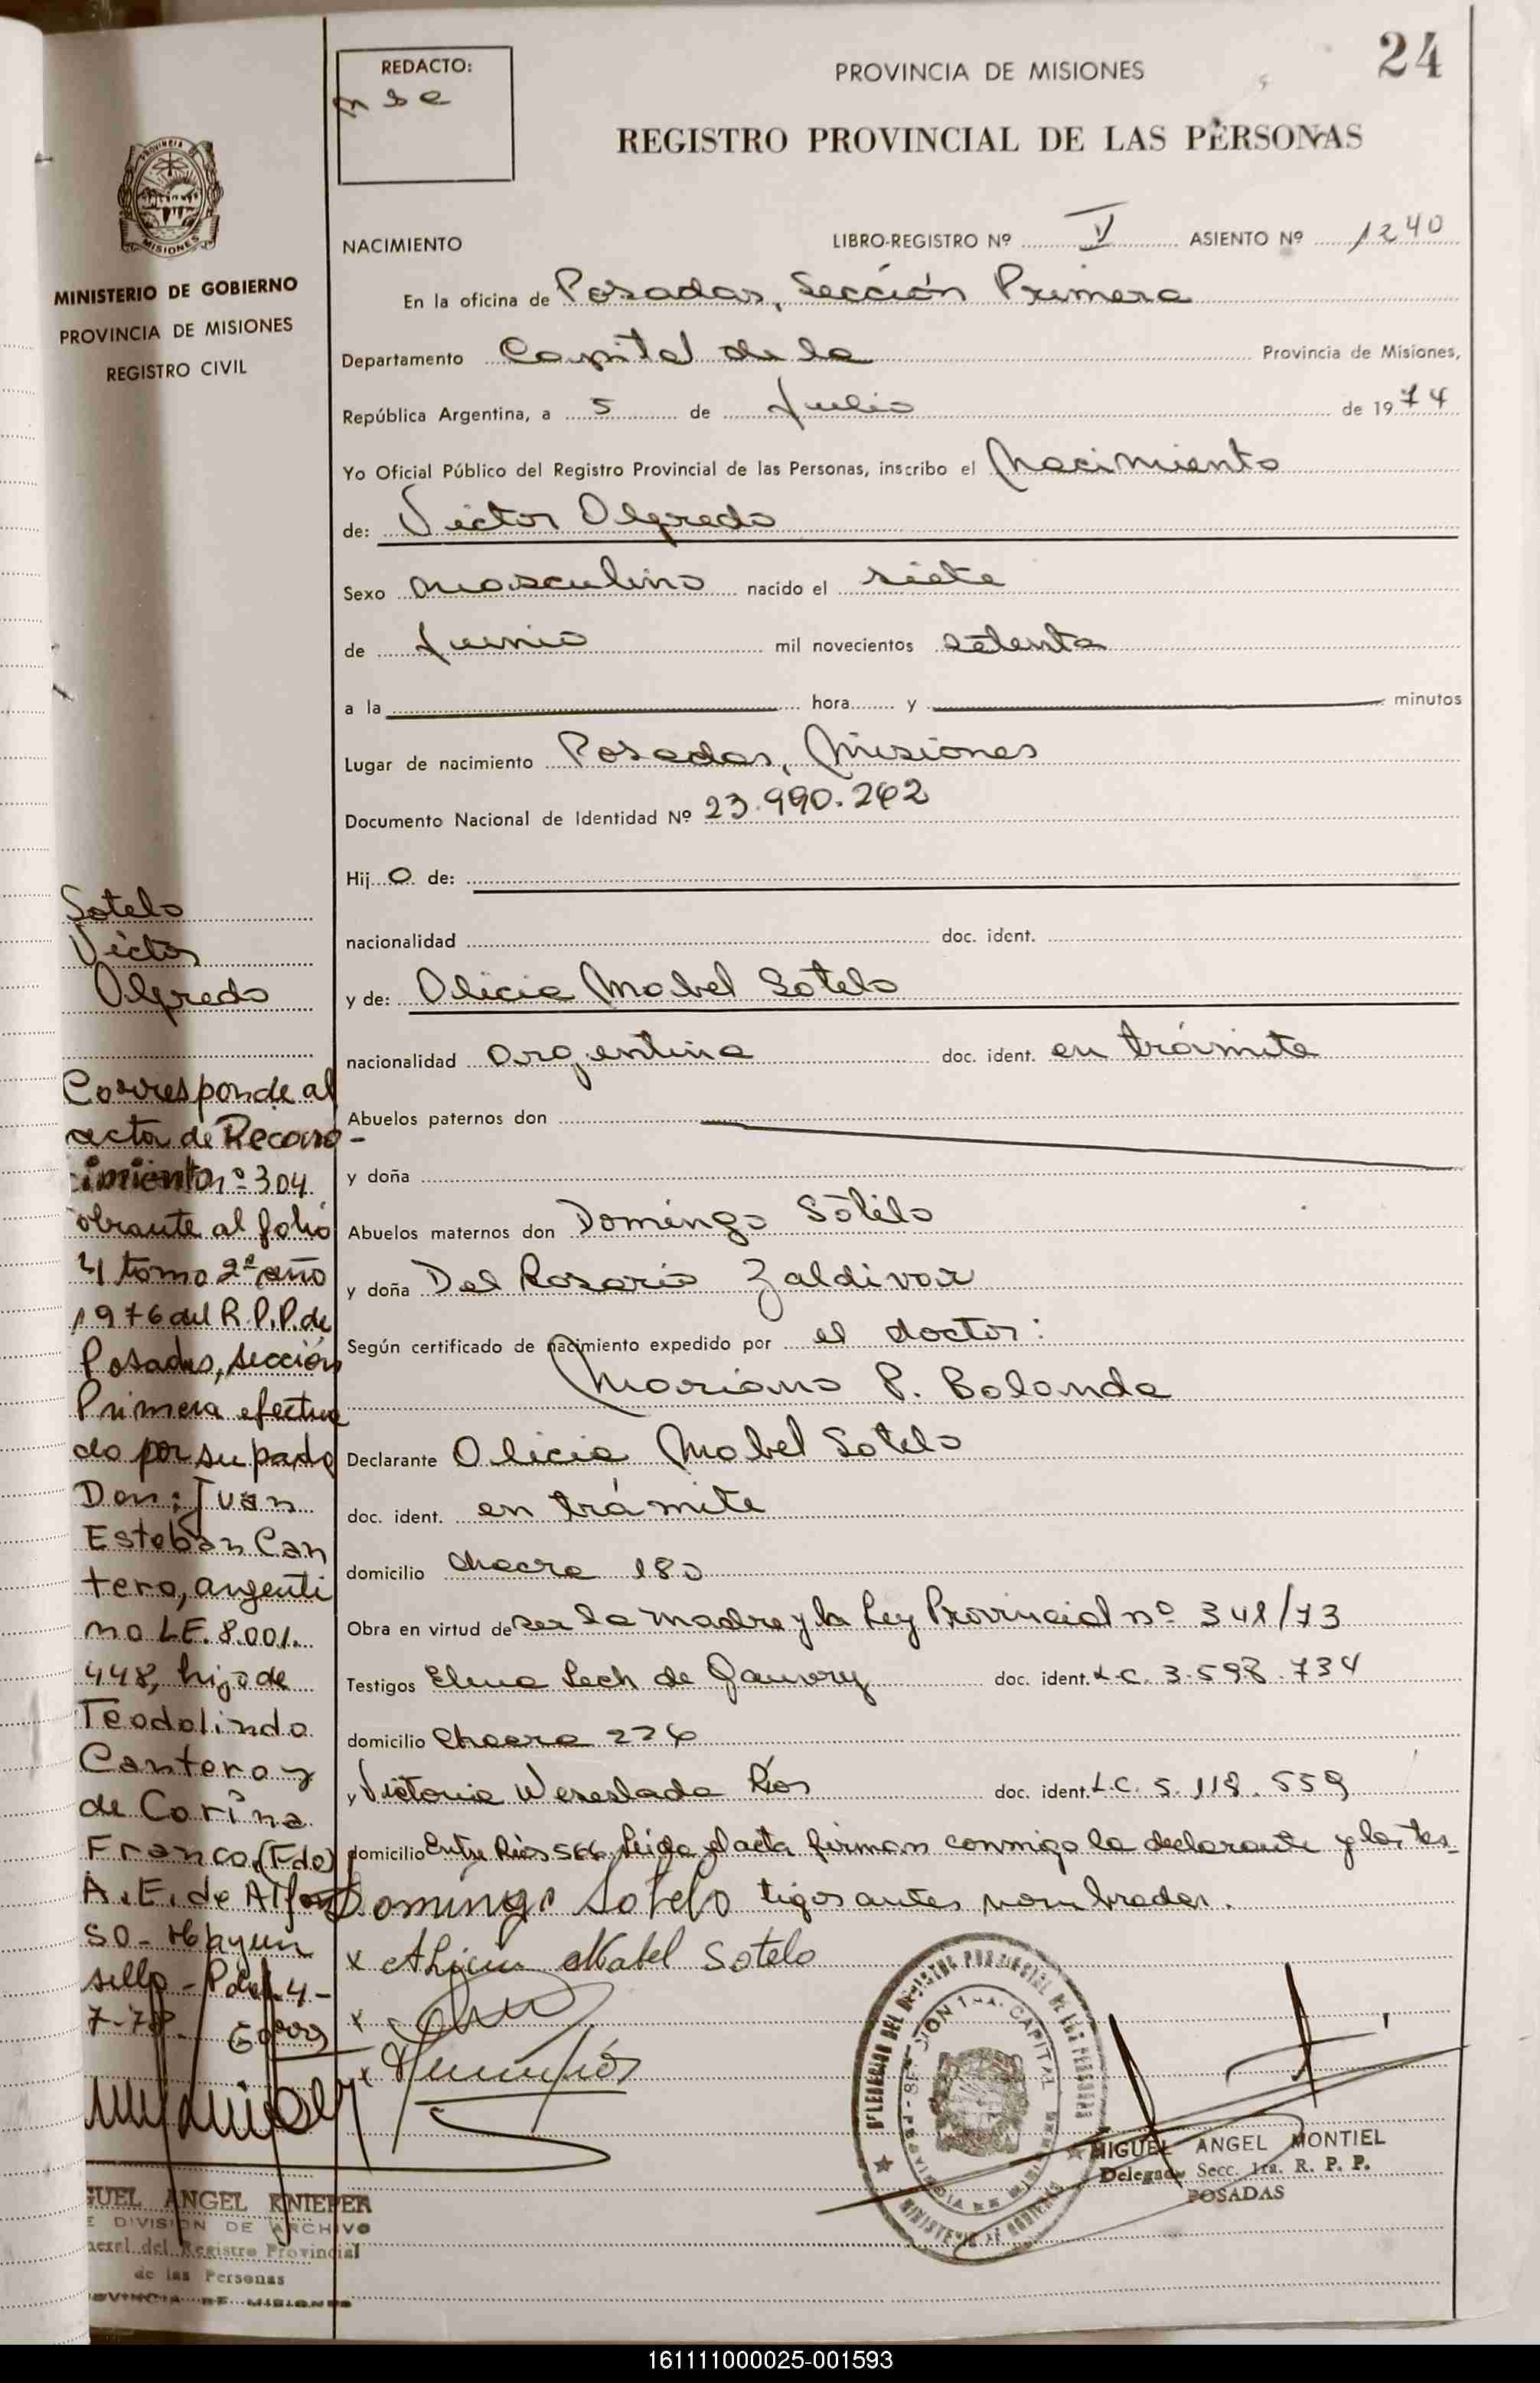 24
REDACTO:
PROVINCIA DE MISIONES
REGISTRO PROVINCIAL DE LAS PERSONAS
NACIMIENTO
LIBRO-REGISTRO Nº V ASIENTO Nº 1240
En la oficina de Posadas, Sección Primera
Departamento Capital de la Provincia de Misiones,
República Argentina, a 5 de Julio de 1974
Yo Oficial Público del Registro Provincial de las Personas, inscribo el Nacimiento
de: Victor Alfredo
Sexo masculino nacido el siete
de Junio mil novecientos setenta
a la hora y minutos
Lugar de nacimiento Posadas, Misiones
Documento Nacional de Identidad Nº 23.990.262
Hijo de:
nacionalidad doc. ident.
y de: Alicia Mabel Sotelo
nacionalidad argentina doc. ident. en trámite
Abuelos paternos don
y doña
Abuelos maternos don Domingo Sotelo
y doña Del Rosario Zaldivar
Según certificado de nacimiento expedido por el doctor:
Mariano P. Balanda
Declarante Alicia Mabel Sotelo
doc. ident. en trámite
domicilio chacra 180
Obra en virtud de ser la madre y la Ley Provincial nº 341/73
Testigos Elena Lech de doc. ident. L.C. 3.598.734
domicilio chacra 226
y Victoria Weneslada Ríos doc. ident. L.C. 5.118.559
domicilio Entre Ríos 566 Leida el acta firman conmigo la declarante y los tes-
Domingo Sotelo tigos antes nombrados.
x Alicia Mabel Sotelo
x
x
MIGUEL ANGEL MONTIEL
Delegado Secc. 1ra. R. P. P.
POSADAS
PROVINCIA DE
MISIONES
MINISTERIO DE GOBIERNO
PROVINCIA DE MISIONES
REGISTRO CIVIL
Sotelo
Victor
Alfredo
Corresponde al
acta de Recono-
cimiento nº 304
obrante al folio
41 tomo 2º año
1976 del R.P.P. de
Posadas, sección
Primera efectua
do por su padre
Don: Juan
Esteban Can
tero, argenti
no L.E. 8.001.
448, hijo de
Teodolindo
Cantero y
de Corina
Franco. (Fdo)
A. E. de Alfon
so - Hay un
sello - Pdas. 4-
7-78.
GUEL ANGEL KNIEPER
E DIVISION DE ARCHIVO
neral del Registro Provincial
de las Personas
OVINCIA DE MISIONES
161111000025-001593